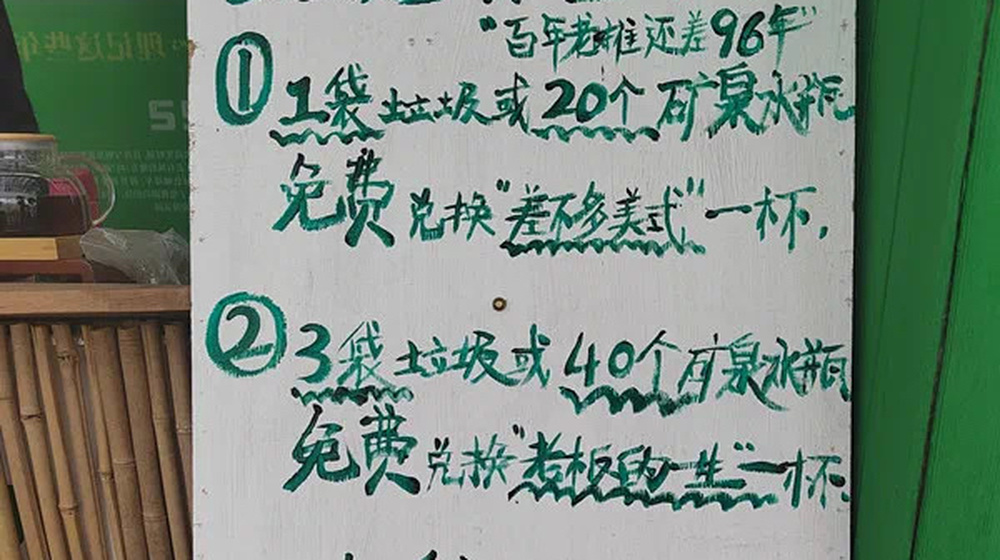 "百年老摊还差96年"
①
1袋垃圾或20个矿泉水瓶
免费兑换"差不多美式"一杯,
②
3袋垃圾或40个矿泉水瓶
免费兑换"老板的一生"一杯.